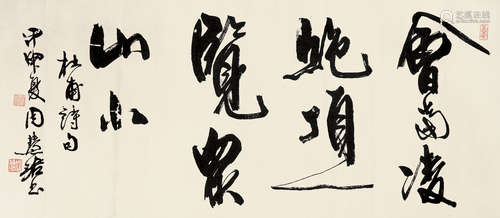 會當凌
絕頂一
覽眾
山小
杜甫詩句
甲申夏周慧珺书